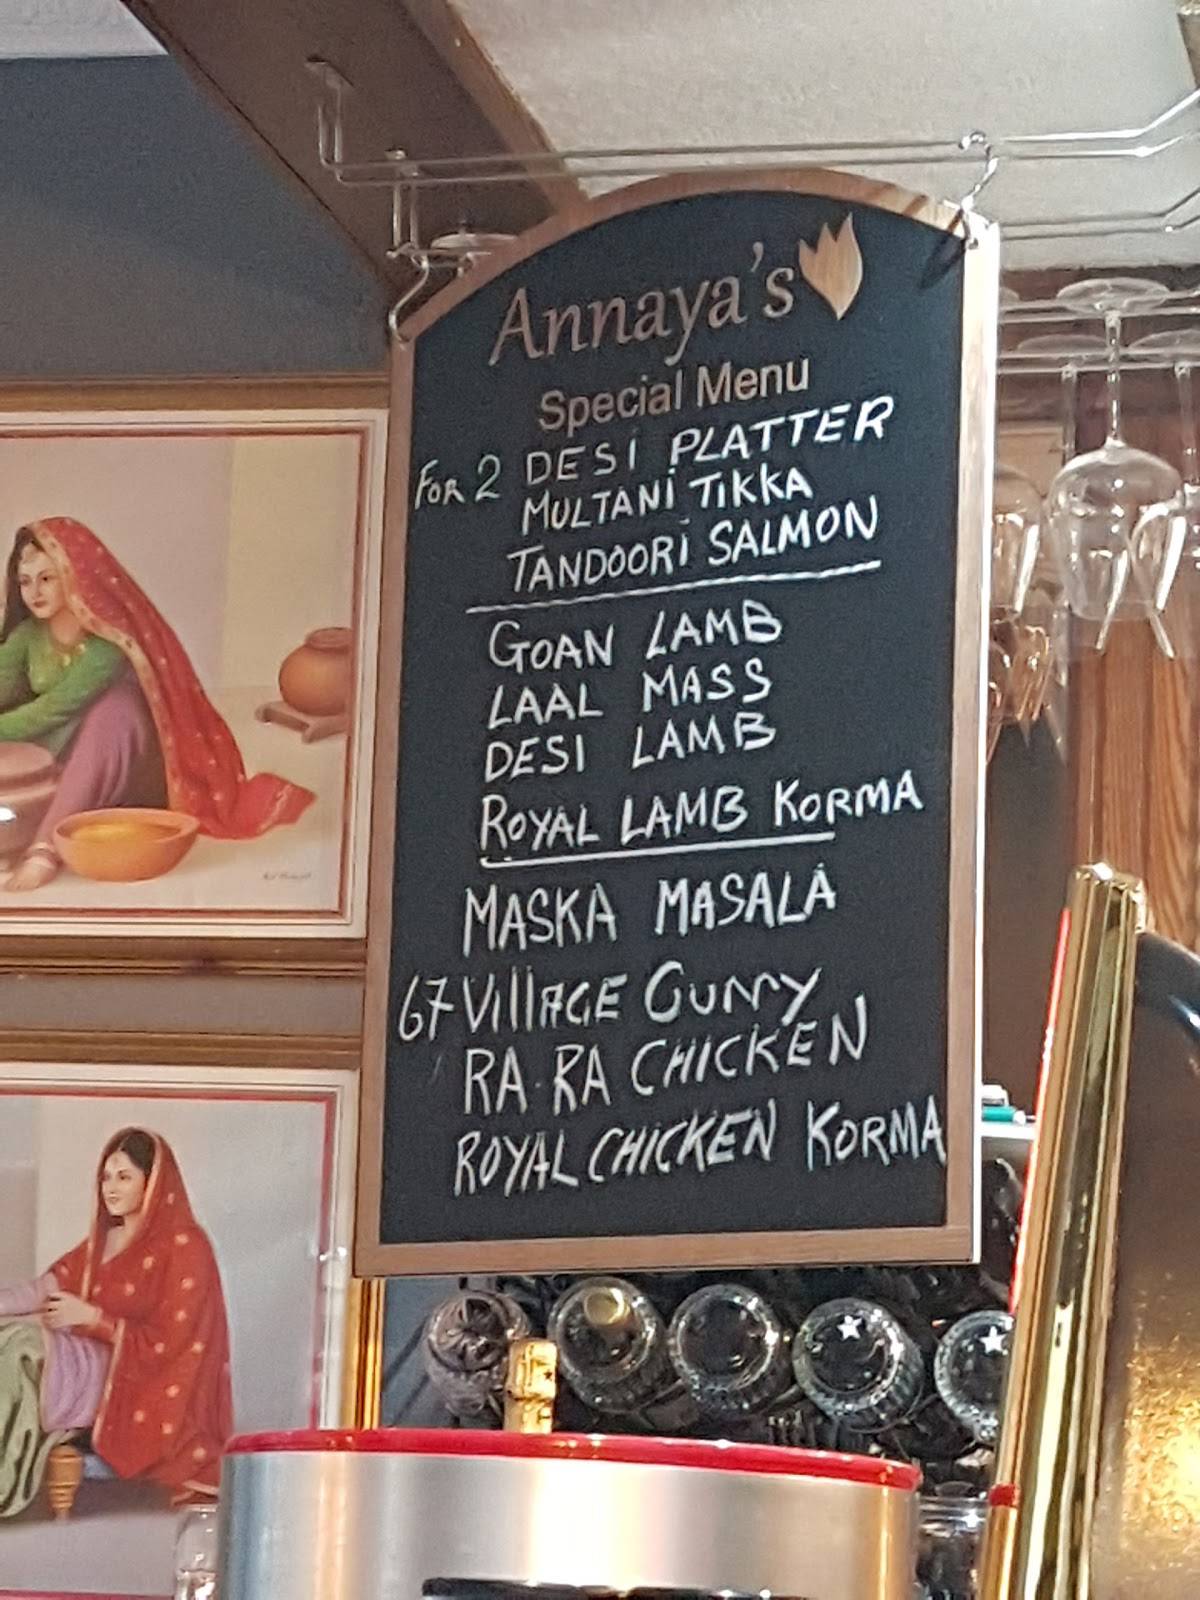 Annaya's
Special Menu
FOR 2 DESI PLATTER
MULTANI TIKKA
TANDOORI SALMON
GOAN LAMB
LAAL MASS
DESI LAMB
ROYAL LAMB KORMA
MASKA MASALA
67 VIllAGE CURRY
RA-RA CHICKEN
ROYAL CHICKEN KORMA